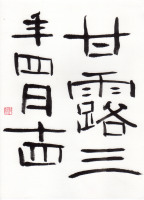 甘露三
年四月